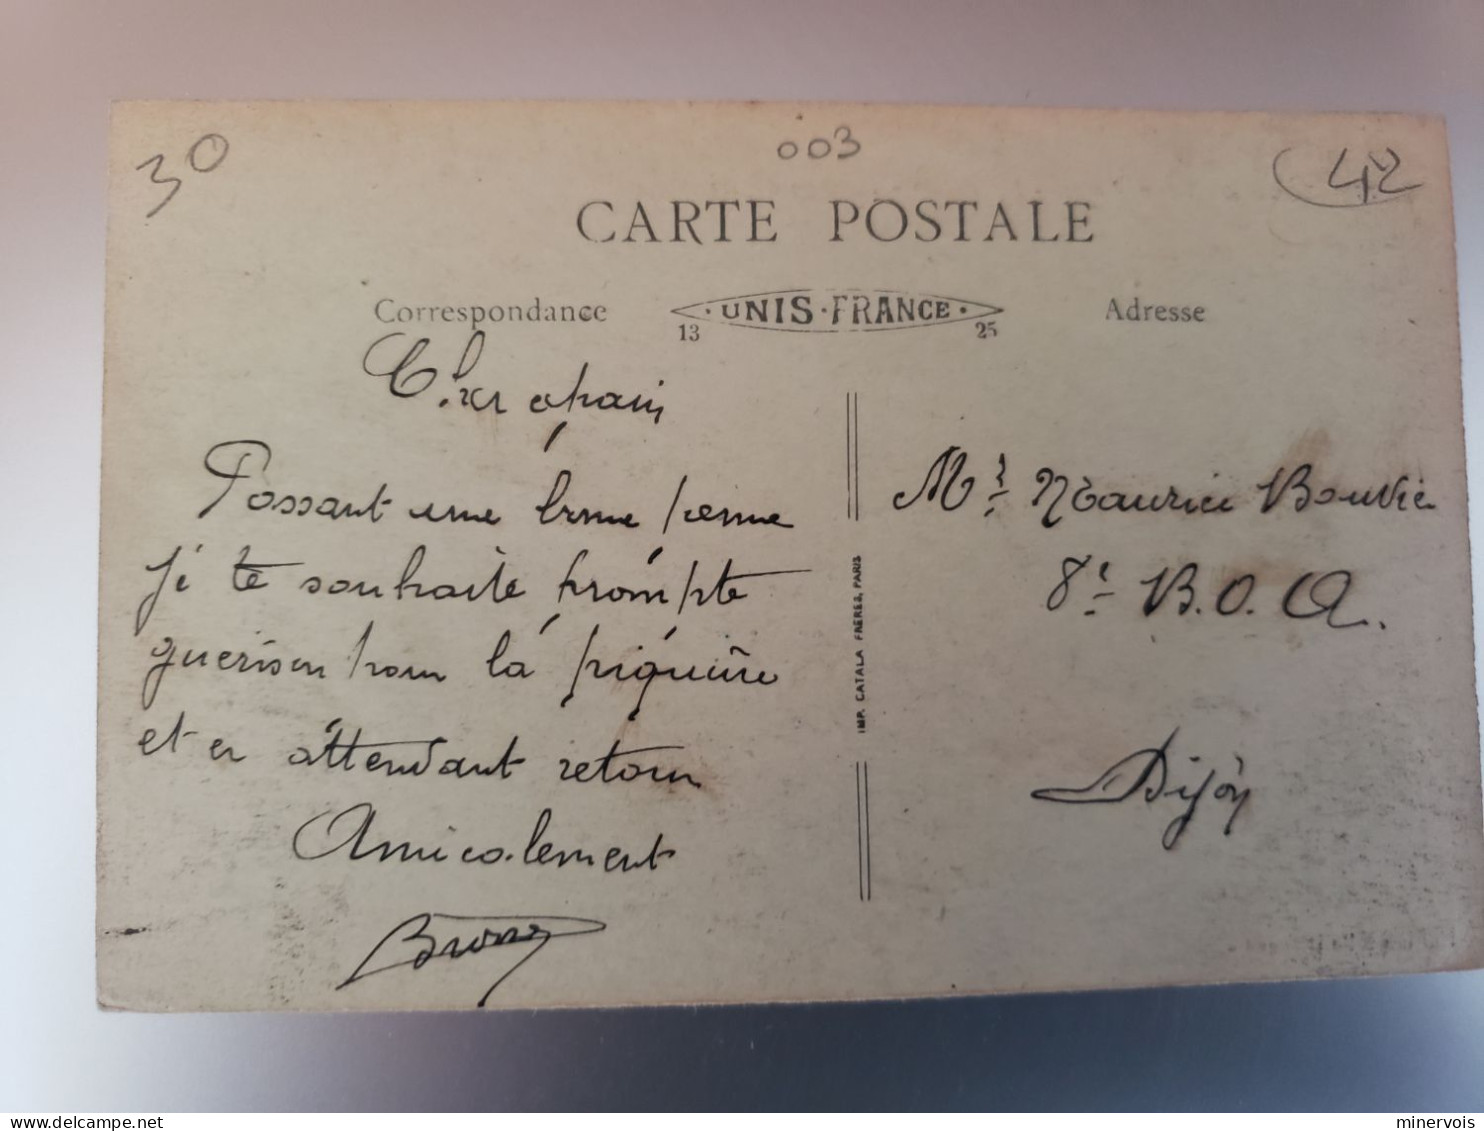 30
003
42
CARTE POSTALE
Correspondance
13 · UNIS · FRANCE · 25
Adresse
Cher copain
Passant une bonne perme
je te souhaite prompte
guerison pour la piqure
et en attendant retour
Amicalement
Mr Maurice Bouvier
8e B.O.A.
Dijon
IMP. CATALA FRERES, PARIS
delcampe.net
minervois